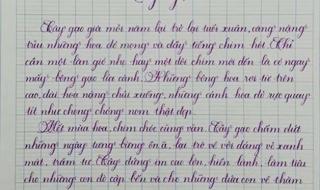 Cây gạo già mỗi năm lại trở lại tuổi xuân, càng nặng
trĩu những hoa đỏ mọng và đầy tiếng chim hót. Chỉ
cần một làn gió nhẹ hay một đôi chim mới đến là có ngay
mấy bông gạo lìa cành. Những bông hoa rơi từ trên
cao, đài hoa nặng chúi xuống, những cánh hoa đỏ rực quay
tít như chong chóng nom thật đẹp.
Hết mùa hoa, chim chóc cũng vãn. Cây gạo chấm dứt
những ngày tưng bừng ồn ã, lại trở về với dáng vẻ xanh
mát, trầm tư. Cây đứng im cao lớn, hiền lành, làm tiêu
cho những con đò cập bến và cho những đứa con về thăm